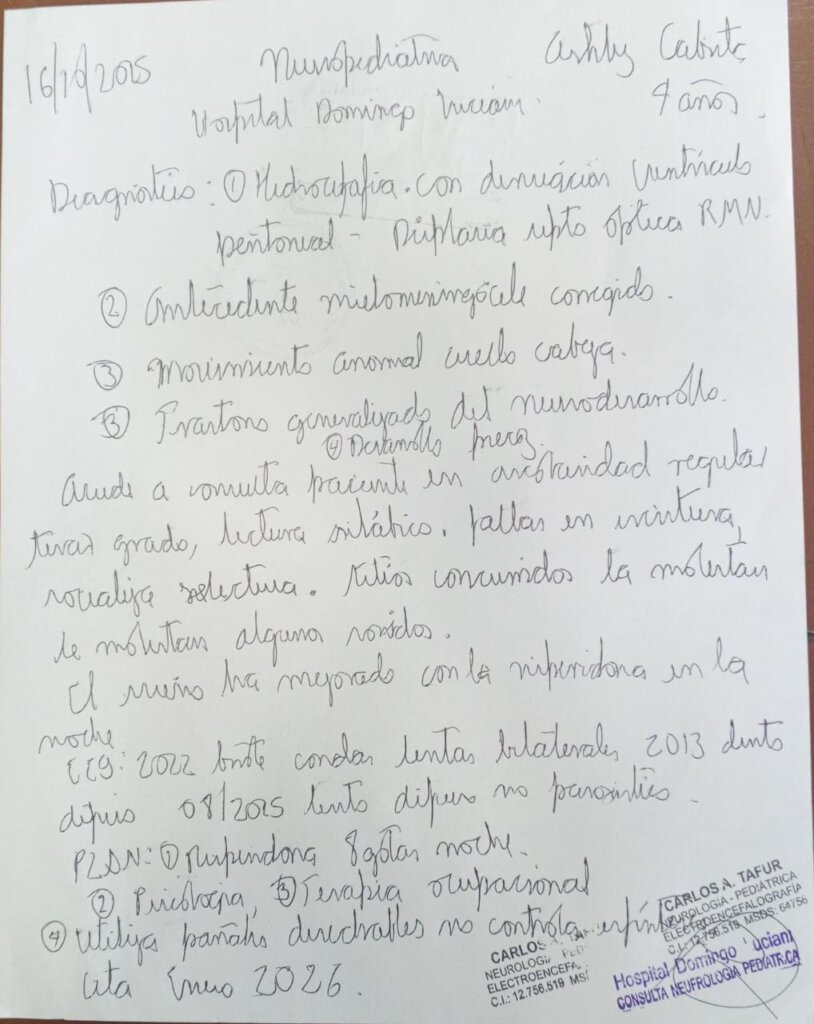 16/10/2025 Neuropediatria Ashly
Hospital Domingo Luciani. 9 años.
Diagnostico: ① Hidrocefalia. con derivación ventriculo
peritoneal - Displasia septo óptica RMN.
② Antecedente mielomeningocele corregido.
③ Movimiento anormal cuello cabeza.
③ Trastorno generalizado del neurodesarrollo.
④ Desarrollo precoz.
Acude a consulta paciente en escolaridad regular
tercer grado, lectura silábico. fallas en escritura,
socializa selectiva. Sitios concurridos la molestan
le molestan algunos sonidos.
El sueño ha mejorado con la risperidona en la
noche
EEG: 2022 brote ondas lentas bilaterales 2013 lento
difuso 08/2025 lento difuso no paroxístico.
PLAN: ① Risperidona 8 gotas noche.
② Psicoterapia, ③ Terapia ocupacional
④ Utiliza pañales desechables no controla esfínter
Cita Enero 2026.
CARLOS A. TAFUR
NEUROLOGIA - PEDIATRICA
ELECTROENCEFALOGRAFIA
C.I.: 12.756.519 MSDS: 64756
CARLOS A. TAF
NEUROLOGI PED
ELECTROENCEFA
C.I.: 12.756.519 MS
Hospital Domingo Luciani
CONSULTA NEUFROLOGIA PEDIATRICA